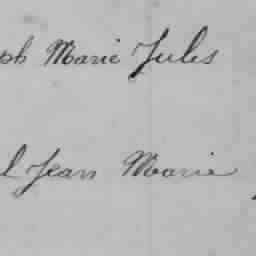 ph Marie Jules
l Jean Marie